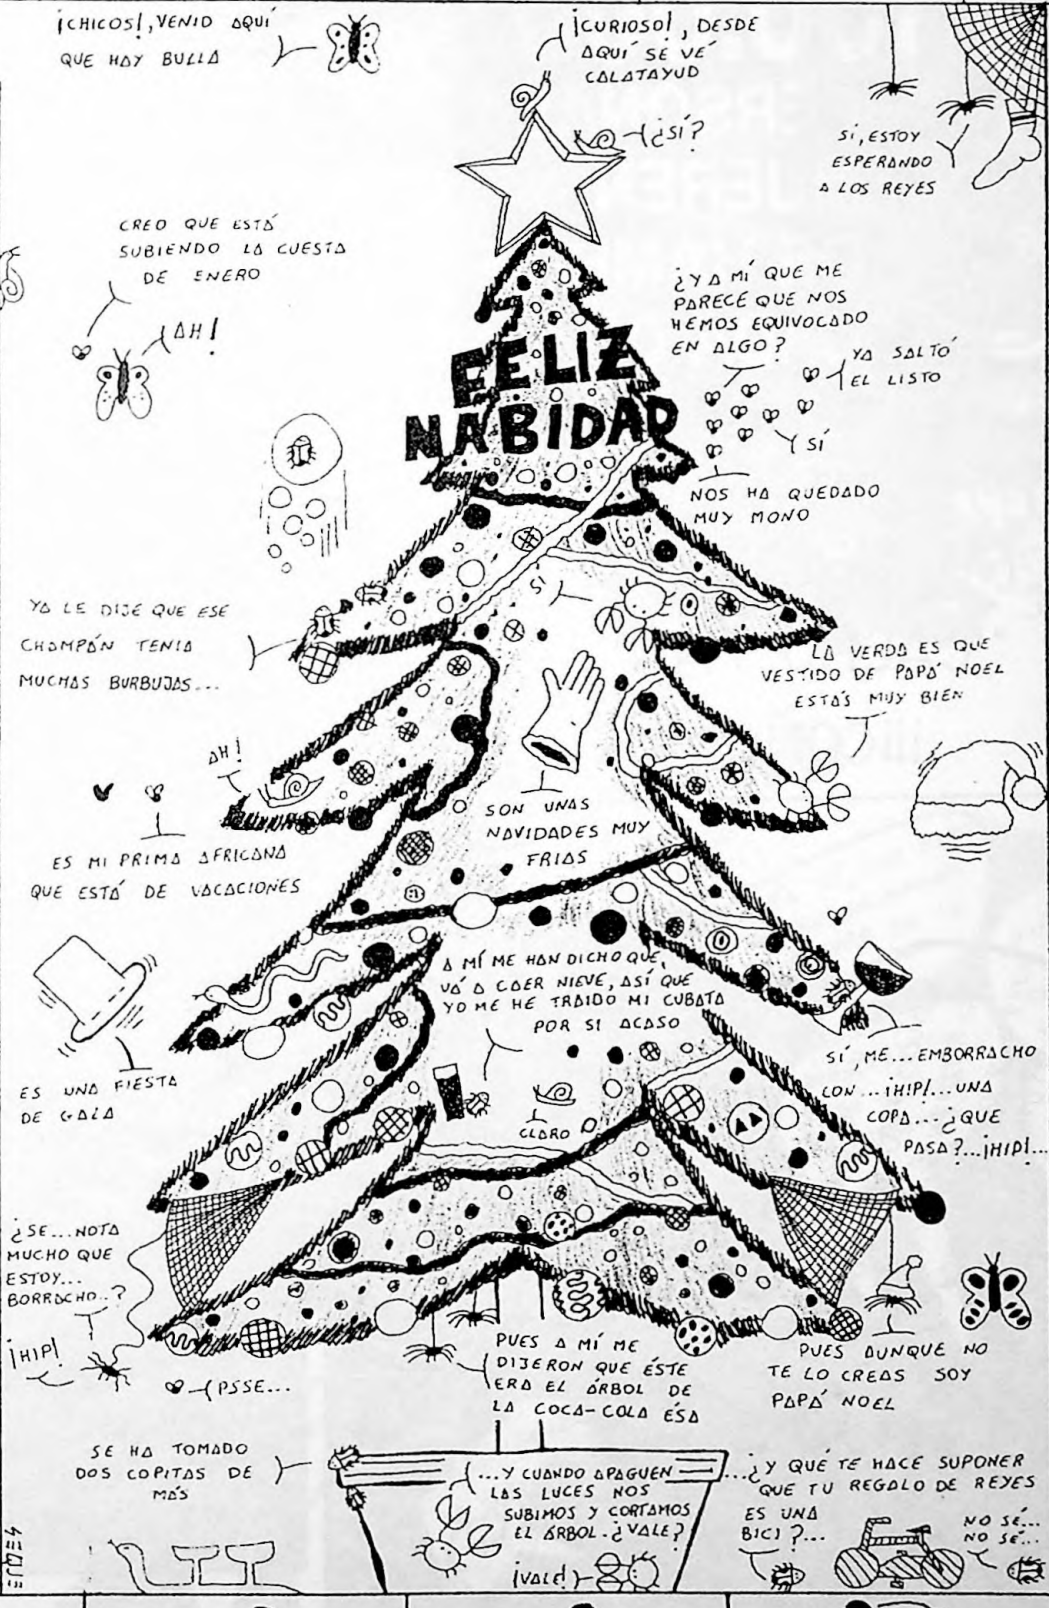 ¡CHICOS!, VENID AQUÍ
QUE HAY BULLA
¡CURIOSO!, DESDE
AQUÍ SE VÉ
CALATAYUD
¿SÍ?
SÍ, ESTOY
ESPERANDO
A LOS REYES
CREO QUE ESTÁ
SUBIENDO LA CUESTA
DE ENERO
¡AH!
¿Y A MÍ QUE ME
PARECE QUE NOS
HEMOS EQUIVOCADO
EN ALGO?
YA SALTÓ
EL LISTO
SÍ
NOS HA QUEDADO
MUY MONO
FELIZ
NABIDAD
SI
YA LE DIJE QUE ESE
CHAMPÁN TENIA
MUCHAS BURBUJAS...
LA VERDA ES QUE
VESTIDO DE PAPÁ NOEL
ESTÁS MUY BIEN
AH!
SON UNAS
NAVIDADES MUY
FRIAS
ES MI PRIMA AFRICANA
QUE ESTÁ DE VACACIONES
A MÍ ME HAN DICHO QUE
VÁ A CAER NIEVE, ASÍ QUE
YO ME HE TRAIDO MI CUBATA
POR SI ACASO
CLARO
ES UNA FIESTA
DE GALA
SÍ, ME... EMBORRACHO
CON... ¡HIP!... UNA
COPA... ¿QUE
PASA?... ¡HIP!...
¿SE... NOTA
MUCHO QUE
ESTOY...
BORRACHO..?
¡HIP!
PSSE...
PUES A MÍ ME
DIJERON QUE ÉSTE
ERA EL ÁRBOL DE
LA COCA-COLA ÉSA
PUES AUNQUE NO
TE LO CREAS SOY
PAPÁ NOEL
SE HA TOMADO
DOS COPITAS DE
MÁS
...Y CUANDO APAGUEN
LAS LUCES NOS
SUBIMOS Y CORTAMOS
EL ÁRBOL. ¿VALE?
¡VALE!
...¿Y QUÉ TE HACE SUPONER
QUE TU REGALO DE REYES
ES UNA
BICI?...
NO SÉ...
NO SÉ...